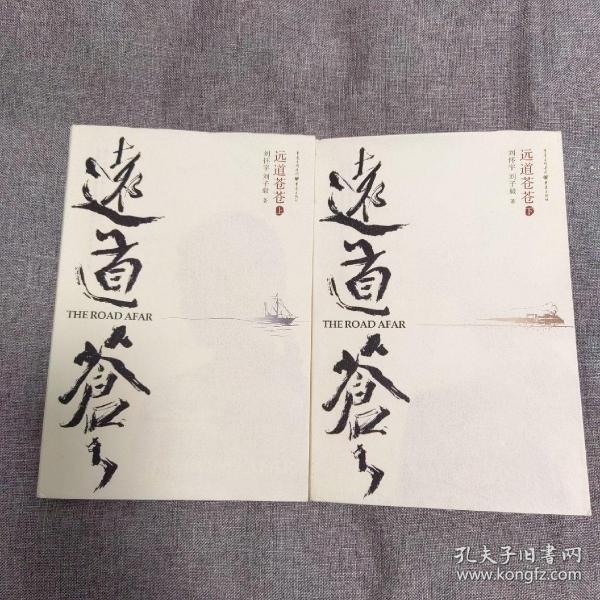 遠道蒼々
THE ROAD AFAR
远道苍苍 上
刘怀宇 刘子毅 著
遠道蒼々
THE ROAD AFAR
远道苍苍 下
刘怀宇 刘子毅 著
孔夫子旧书网
www.kongfz.com